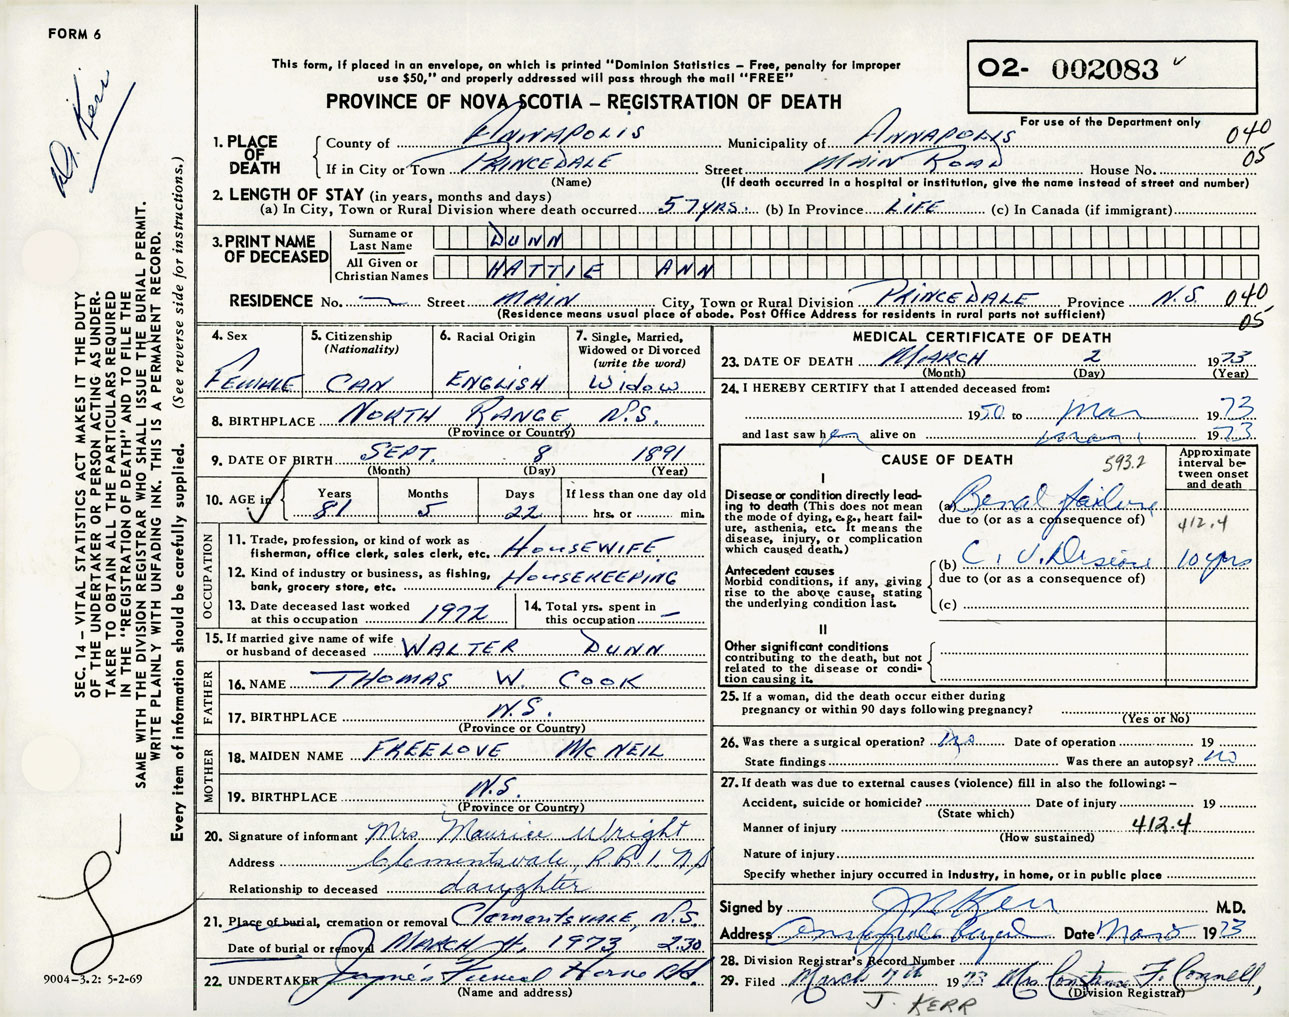 FORM 6
Dr. Kerr
This form, if placed in an envelope, on which is printed "Dominion Statistics – Free, penalty for improper
use $50," and properly addressed will pass through the mail "FREE"
O2- 002083
For use of the Department only
PROVINCE OF NOVA SCOTIA – REGISTRATION OF DEATH
1. PLACE OF DEATH
County of ANNAPOLIS Municipality of ANNAPOLIS 040
If in City or Town PRINCEDALE Street MAIN ROAD House No. 05
(Name) (If death occurred in a hospital or institution, give the name instead of street and number)
2. LENGTH OF STAY (in years, months and days)
(a) In City, Town or Rural Division where death occurred 57 YRS. (b) In Province LIFE (c) In Canada (if immigrant)
3. PRINT NAME OF DECEASED
Surname or Last Name DUNN
All Given or Christian Names HATTIE ANN
RESIDENCE No. Street MAIN City, Town or Rural Division PRINCEDALE Province N.S. 040
(Residence means usual place of abode. Post Office Address for residents in rural parts not sufficient) 05
4. Sex FEMALE
5. Citizenship (Nationality) CAN
6. Racial Origin ENGLISH
7. Single, Married, Widowed or Divorced (write the word) WIDOW
8. BIRTHPLACE NORTH RANGE, N.S.
(Province or Country)
9. DATE OF BIRTH SEPT. 8 1891
(Month) (Day) (Year)
10. AGE in Years 81 Months 5 Days 22 If less than one day old hrs. or min.
OCCUPATION
11. Trade, profession, or kind of work as fisherman, office clerk, sales clerk, etc. HOUSEWIFE
12. Kind of industry or business, as fishing, bank, grocery store, etc. HOUSEKEEPING
13. Date deceased last worked at this occupation 1972
14. Total yrs. spent in this occupation –
15. If married give name of wife or husband of deceased WALTER DUNN
FATHER
16. NAME THOMAS W. COOK
17. BIRTHPLACE N.S.
(Province or Country)
MOTHER
18. MAIDEN NAME FREELOVE MCNEIL
19. BIRTHPLACE N.S.
(Province or Country)
20. Signature of informant Mrs Maurice Wright
Address Clementsvale, R.R.1 NS
Relationship to deceased daughter
21. Place of burial, cremation or removal CLEMENTSVALE, N.S.
Date of burial or removal MARCH 4, 1973 2.30
22. UNDERTAKER Jayne's Funeral Home
(Name and address)
MEDICAL CERTIFICATE OF DEATH
23. DATE OF DEATH MARCH 2 1973
(Month) (Day) (Year)
24. I HEREBY CERTIFY that I attended deceased from:
1950 to Mar 1973
and last saw her alive on Mar 1 1973
CAUSE OF DEATH 593.2
Approximate interval between onset and death
I
Disease or condition directly leading to death (This does not mean the mode of dying, e.g., heart failure, asthenia, etc. It means the disease, injury, or complication which caused death.)
(a) Renal failure
due to (or as a consequence of) 412.4
Antecedent causes
Morbid conditions, if any, giving rise to the above cause, stating the underlying condition last.
(b) C.V. Disease 10 yrs
due to (or as a consequence of)
(c)
II
Other significant conditions
contributing to the death, but not related to the disease or condition causing it.
25. If a woman, did the death occur either during pregnancy or within 90 days following pregnancy?
(Yes or No)
26. Was there a surgical operation? no Date of operation 19
State findings Was there an autopsy? no
27. If death was due to external causes (violence) fill in also the following: –
Accident, suicide or homicide? Date of injury 19
(State which)
Manner of injury 412.4
(How sustained)
Nature of injury
Specify whether injury occurred in industry, in home, or in public place
Signed by Kerr M.D.
Address Annapolis Royal Date Mar 5 1973
28. Division Registrar's Record Number
29. Filed March 7th 1973 Mrs Constance F. Connell,
(Division Registrar)
J. KERR
SEC. 14 – VITAL STATISTICS ACT MAKES IT THE DUTY
OF THE UNDERTAKER OR PERSON ACTING AS UNDER-
TAKER TO OBTAIN ALL THE PARTICULARS REQUIRED
IN THE "REGISTRATION OF DEATH" AND TO FILE THE
SAME WITH THE DIVISION REGISTRAR WHO SHALL ISSUE THE BURIAL PERMIT.
WRITE PLAINLY WITH UNFADING INK. THIS IS A PERMANENT RECORD.
Every item of information should be carefully supplied. (See reverse side for instructions.)
9004-3.2: 5-2-69